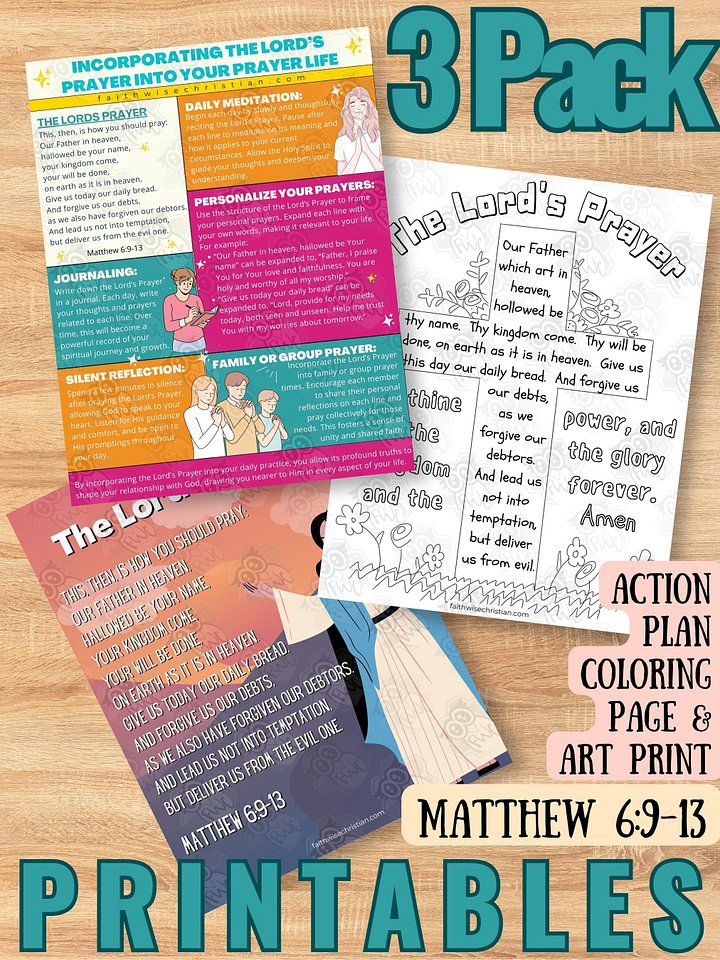 3 Pack
INCORPORATING THE LORD'S
PRAYER INTO YOUR PRAYER LIFE
faithwisechristian.com
THE LORDS PRAYER
This, then, is how you should pray:
Our Father in heaven,
hallowed be your name,
your kingdom come,
your will be done,
on earth as it is in heaven.
Give us today our daily bread.
And forgive us our debts,
as we also have forgiven our debtors.
And lead us not into temptation,
but deliver us from the evil one.
Matthew 6:9-13
DAILY MEDITATION:
Begin each day by slowly and thoughtfully
reciting the Lord's Prayer. Pause after
each line to meditate on its meaning and
how it applies to your current
circumstances. Allow the Holy Spirit to
guide your thoughts and deepen your
understanding.
PERSONALIZE YOUR PRAYERS:
Use the structure of the Lord's Prayer to frame
your personal prayers. Expand each line with
your own words, making it relevant to your life.
For example:
• "Our Father in heaven, hallowed be Your
name" can be expanded to, "Father, I praise
You for Your love and faithfulness. You are
holy and worthy of all my worship."
• "Give us today our daily bread" can be
expanded to, "Lord, provide for my needs
today, both seen and unseen. Help me trust
You with my worries about tomorrow."
JOURNALING:
Write down the Lord's Prayer
in a journal. Each day, write
your thoughts and prayers
related to each line. Over
time, this will become a
powerful record of your
spiritual journey and growth.
SILENT REFLECTION:
Spend a few minutes in silence
after praying the Lord's Prayer,
allowing God to speak to your
heart. Listen for His guidance
and comfort, and be open to
His promptings throughout
your day.
FAMILY OR GROUP PRAYER:
Incorporate the Lord's Prayer
into family or group prayer
times. Encourage each member
to share their personal
reflections on each line and
pray collectively for those
needs. This fosters a sense of
unity and shared faith.
By incorporating the Lord's Prayer into your daily practice, you allow its profound truths to
shape your relationship with God, drawing you nearer to Him in every aspect of your life.
The Lord's Prayer
Our Father
which art in
heaven,
hallowed be
thy name. Thy kingdom come. Thy will be
done, on earth as it is in heaven. Give us
this day our daily bread. And forgive us
our debts,
as we
forgive our
debtors.
And lead us
not into
temptation,
but deliver
us from evil.
thine
and the
power, and
the glory
forever.
Amen
faithwisechristian.com
The Lor
THIS, THEN, IS HOW YOU SHOULD PRAY:
OUR FATHER IN HEAVEN,
HALLOWED BE YOUR NAME,
YOUR KINGDOM COME,
YOUR WILL BE DONE,
ON EARTH AS IT IS IN HEAVEN.
GIVE US TODAY OUR DAILY BREAD.
AND FORGIVE US OUR DEBTS,
AS WE ALSO HAVE FORGIVEN OUR DEBTORS.
AND LEAD US NOT INTO TEMPTATION,
BUT DELIVER US FROM THE EVIL ONE.
MATTHEW 6:9-13
faithwisechristian.com
ACTION
PLAN
COLORING
PAGE &
ART PRINT
MATTHEW 6:9-13
PRINTABLES